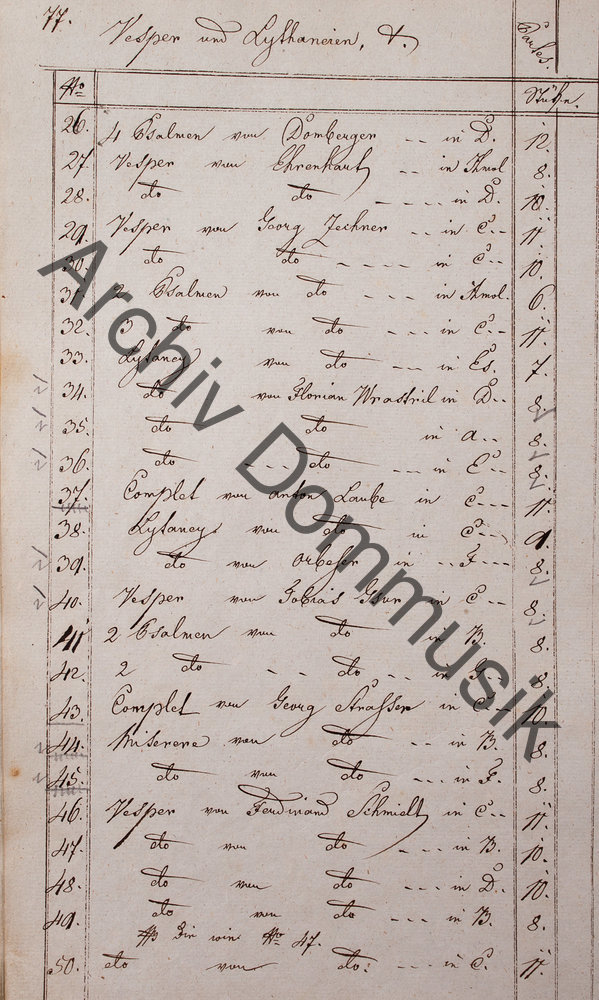 77.
Vesper und Lythaneien, &.
Partes.
No
Stücke.
26. 4 Psalmen von Domberger -- in D. 12
27. Vesper von Ehrenhart -- in Amol 8.
28. do do ---- in D. 10.
29. Vesper von Georg Zechner -- in C-- 11.
30. do do ---- in C-- 10.
31. 2 Psalmen von do --- in Amol. 6.
32. 3 do von do --- in C-- 11.
33. Lytaney von do --- in Es. 7.
34. do von Florian Wrastril in D-- 8.
35. do do in a-- 8.
36. do --- do --- in E-- 8.
37. Complet von anton Laube in C--- 11.
38. Lytaney von do in C--- 9.
39. do von in -- F--- 8.
40. Vesper von Tobias Gsur in C-- 8.
41 2 Psalmen von do in B. 8.
42. 2 do -- do -- in G-- 8.
43. Complet von Georg Strasser in C-- 10.
44. Miserere von do -- in B. 8.
45. do von do --- in F. 8.
46. Vesper von Ferdinand Schmidt in C-- 11.
47. do von do ---- in B. 10.
48. do von do --- in D-- 10.
49. do von do --- in B. 8.
Die wie No 47.
50. do von do: --- in C. 11.
Archiv Dommusik